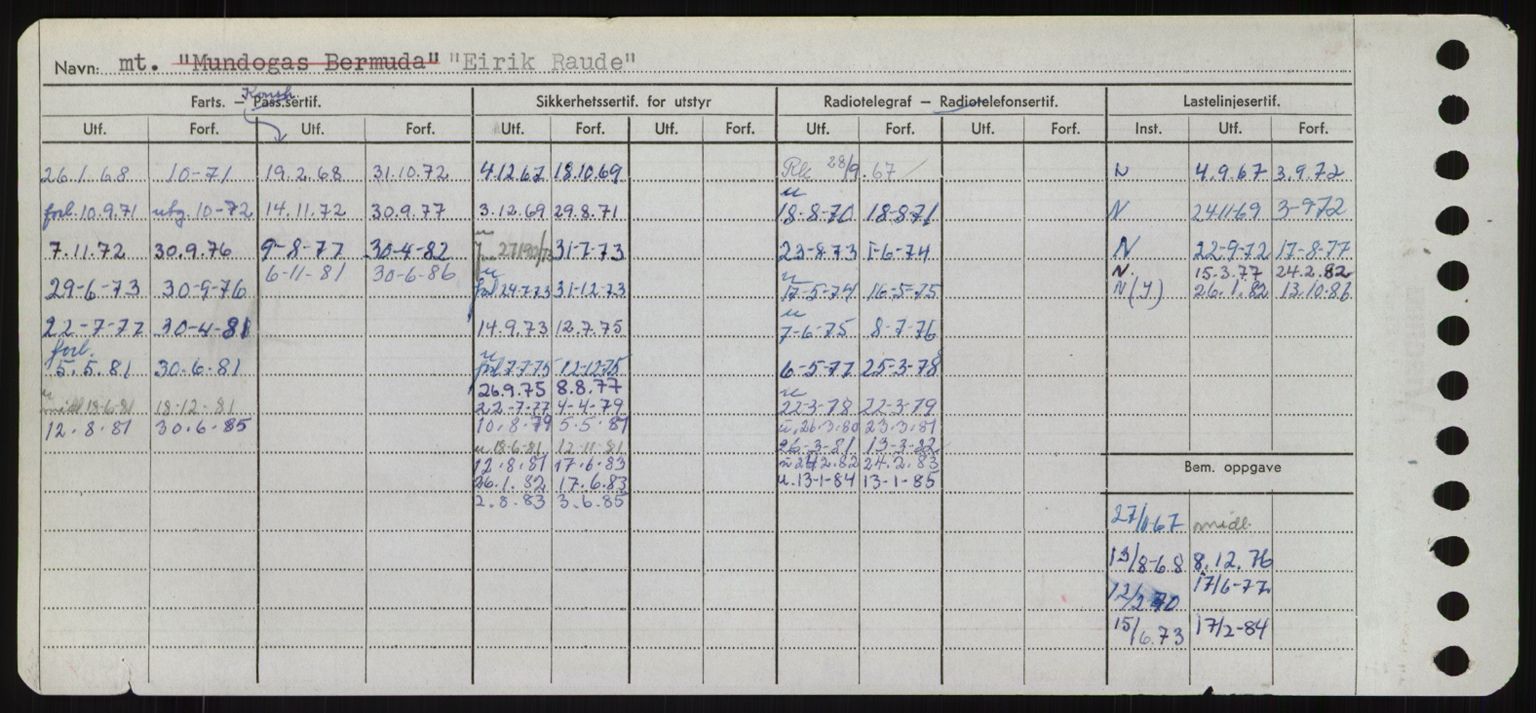 Navn: mt. "Mundogas Bermuda" "Eirik Raude"
Farts. – Pass.sertif. Konstr. Sikkerhetssertif. for utstyr Radiotelegraf – Radiotelefonsertif. Lastelinjesertif.
Utf. Forf. Utf. Forf. Utf. Forf. Utf. Forf. Utf. Forf. Utf. Forf. Inst. Utf. Forf.
26.1.68 10-71 19.2.68 31.10.72 4.12.67 18.10.69 28/9 67 N 4.9.67 3.9.72
forl. 10.9.71 utg. 10-72 14.11.72 30.9.77 3.12.69 29.8.71 u 18-8-70 18-8-71 N 24.11.69 3-9-72
7.11.72 30.9.76 9-8-77 30-4-82 31-7-73 23-8-73 1-6-74 N 22-9-72 17-8-77
6-11-81 30-6-86 N. 15.3.77 24.2.82
29-6-73 30-9-76 u forl 29-7-73 31-12-73 u 17-5-74 16-5-75 N(Y) 26.1.82 13.10.86
22-7-77 30-4-81 14.9.73 12.7.75 u 7-6-75 8-7-76
forl. 5.5.81 30.6.81 u forl 7-7-75 12-12-75 6-5-77 25-3-78
26.9.75 8.8.77
u midl 18-6-81 18-12-81 22-7-77 4-4-79 u 22-3-78 22-3-79
12.8.81 30.6.85 10.8.79 5.5.81 u. 26.3.80 23.3.81
u 18-6-81 12-11-81 26-3-81 13-3-82
12.8.81 17.6.83 u 24.2.82 24.2.83
26.1.82 17.6.83 u. 13-1-84 13-1-85
2.8.83 3.6.85
Bem. oppgave
27/10-67 midl.
13/8-68 8.12.76
12/2 70 17/6-77
15/6.73 17/2-84